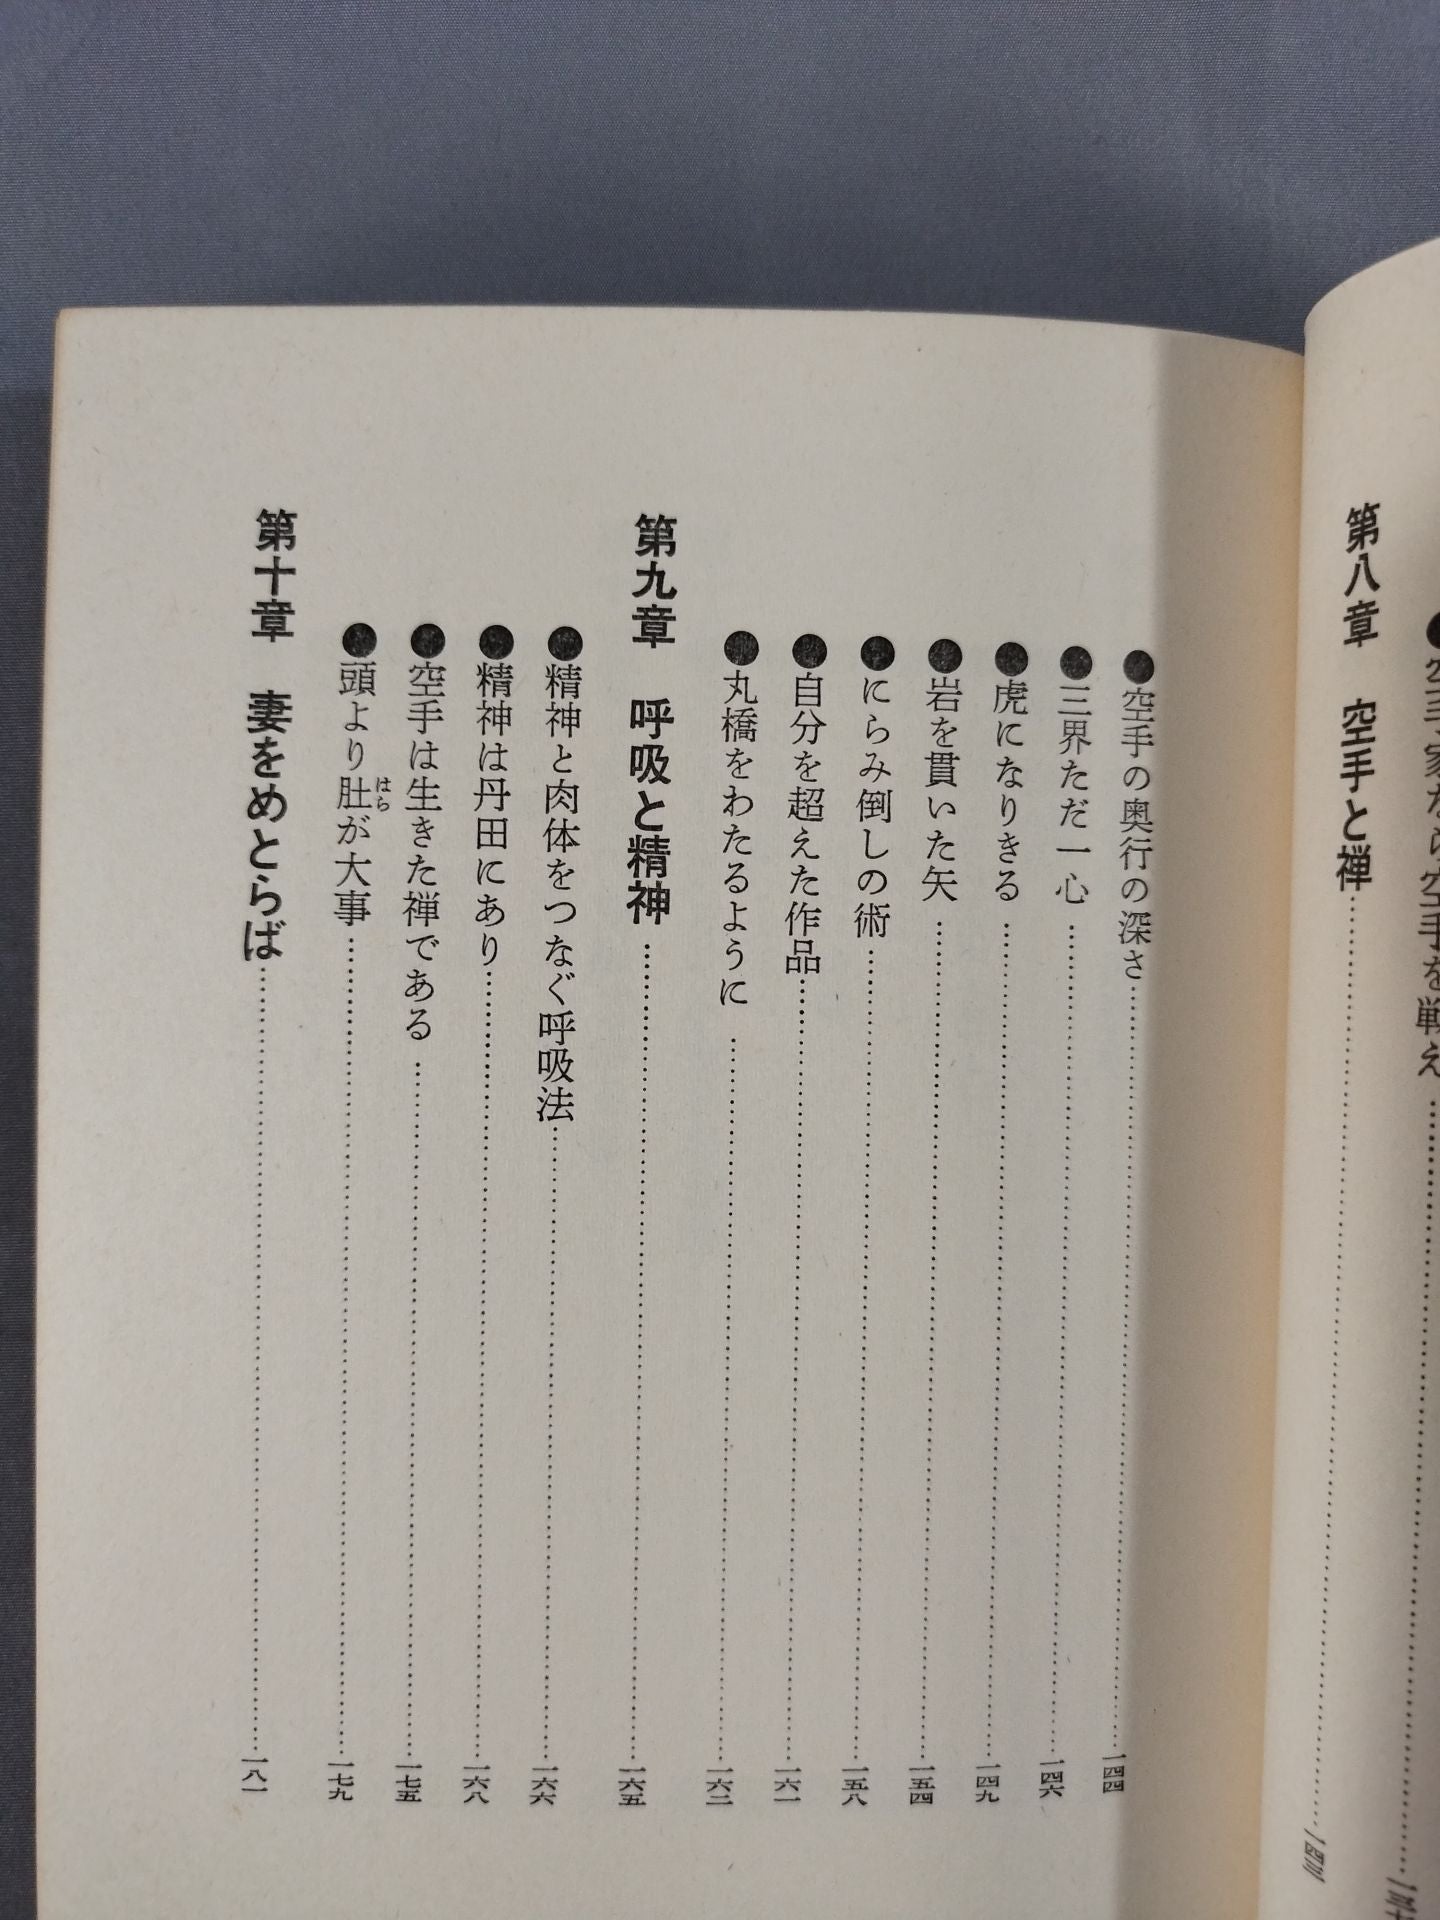 ●空手家なら空手を戦え
第八章　空手と禅……一四三
●空手の奥行の深さ……一四四
●三界ただ一心……一四六
●虎になりきる……一四九
●岩を貫いた矢……一五四
●にらみ倒しの術……一五八
●自分を超えた作品……一六一
●丸橋をわたるように……一六二
第九章　呼吸と精神……一六五
●精神と肉体をつなぐ呼吸法……一六六
●精神は丹田にあり……一六八
●空手は生きた禅である……一七五
●頭より肚はらが大事……一七九
第十章　妻をめとらば……一八一